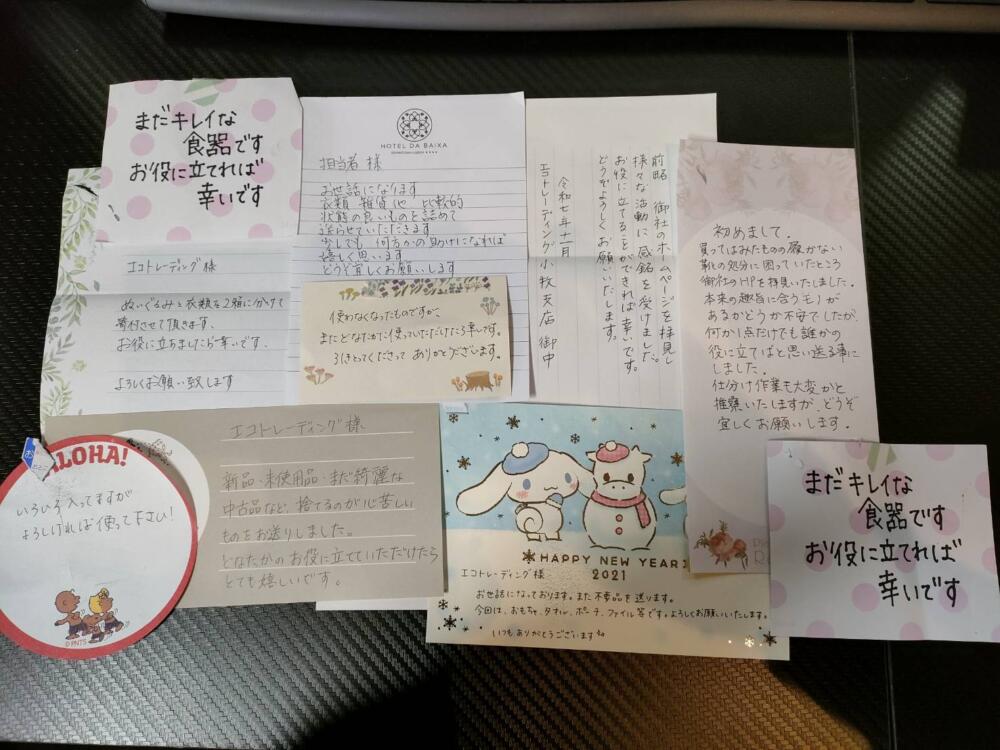 まだキレイな
食器です
お役に立てれば
幸いです
HOTEL DA BAIXA
担当者 様
お世話になります
衣類 雑貨他 比較的
状態の良いものを詰めて
送らせていただきます
少しでも 何方かの助けになれば
嬉しく思います
どうぞ宜しくお願いします
前略 御社のホームページを拝見し
様々な活動に感銘を受けました。
お役に立てることができれば幸いです。
どうぞよろしくお願いいたします。
令和七年十一月
エコトレーディング小牧支店 御中
初めまして。
買ってはみたものの履かない
靴の処分に困っていたところ
御社のHPを拝見いたしました。
本来の趣旨に合うモノが
あるかどうか不安でしたが、
何か1点だけでも誰かの
役に立てばと思い送る事に
しました。
仕分け作業も大変かと
推察いたしますが、どうぞ
宜しくお願いします。
エコトレーディング様
ぬいぐるみと衣類を2箱に分けて
寄付させて頂きます。
お役に立ちましたら幸いです。
よろしくお願い致します
使わなくなったものですが、
またどなたかに使っていただけたら幸いです。
引きとってくださって ありがとうございます。
エコトレーディング様
新品・未使用品・まだ綺麗な
中古品など、捨てるのが心苦しい
ものをお送りしました。
どなたかのお役に立てていただけたら
とても嬉しいです。
ALOHA!
いろいろ入ってますが
よろしければ使って下さい!
©PNTS
HAPPY NEW YEAR
2021
エコトレーディング様
お世話になっております。また不要品を送ります。
今回は、おもちゃ、タオル、ポーチ、ファイル等です。よろしくお願いいたします。
いつもありがとうございます
まだキレイな
食器です
お役に立てれば
幸いです